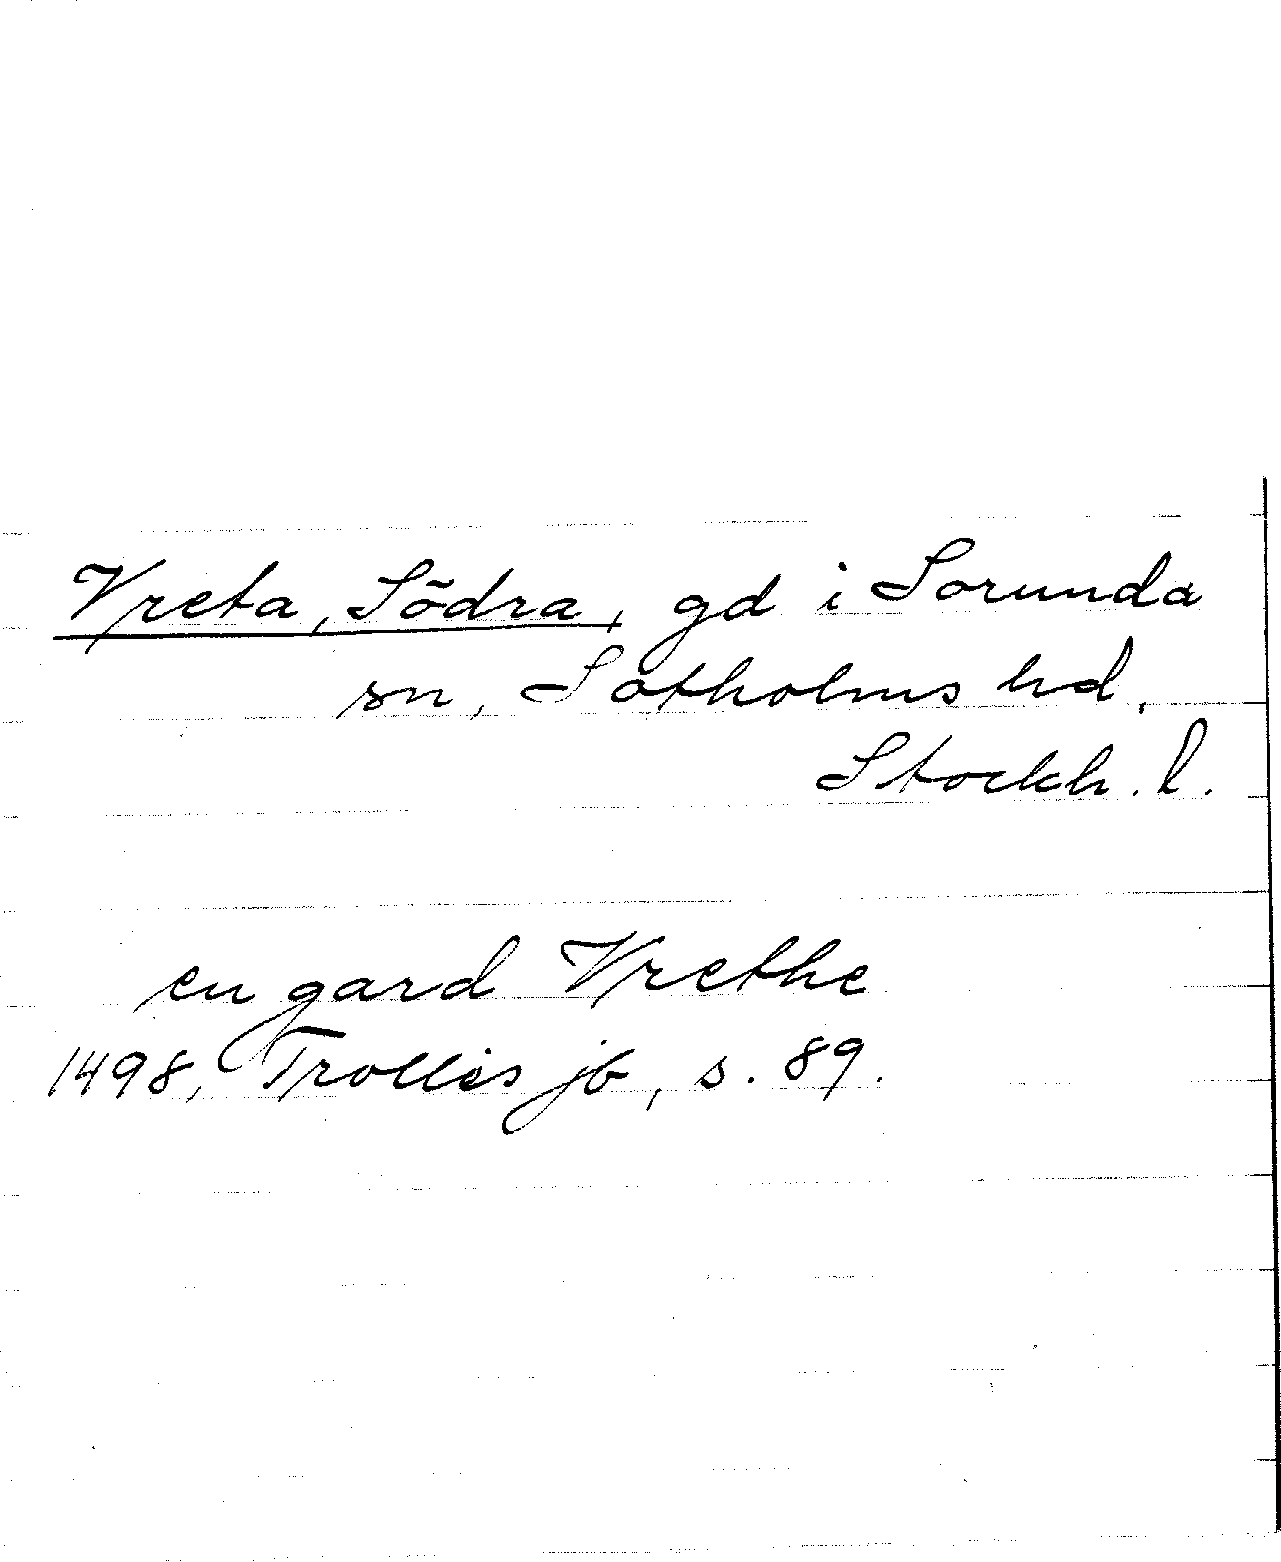 Vreta, Södra, gd i Sorunda
sn, Sotholms hd,
Stockh. l.
en gard Vrethe
1498, Trolles jb, s. 89.